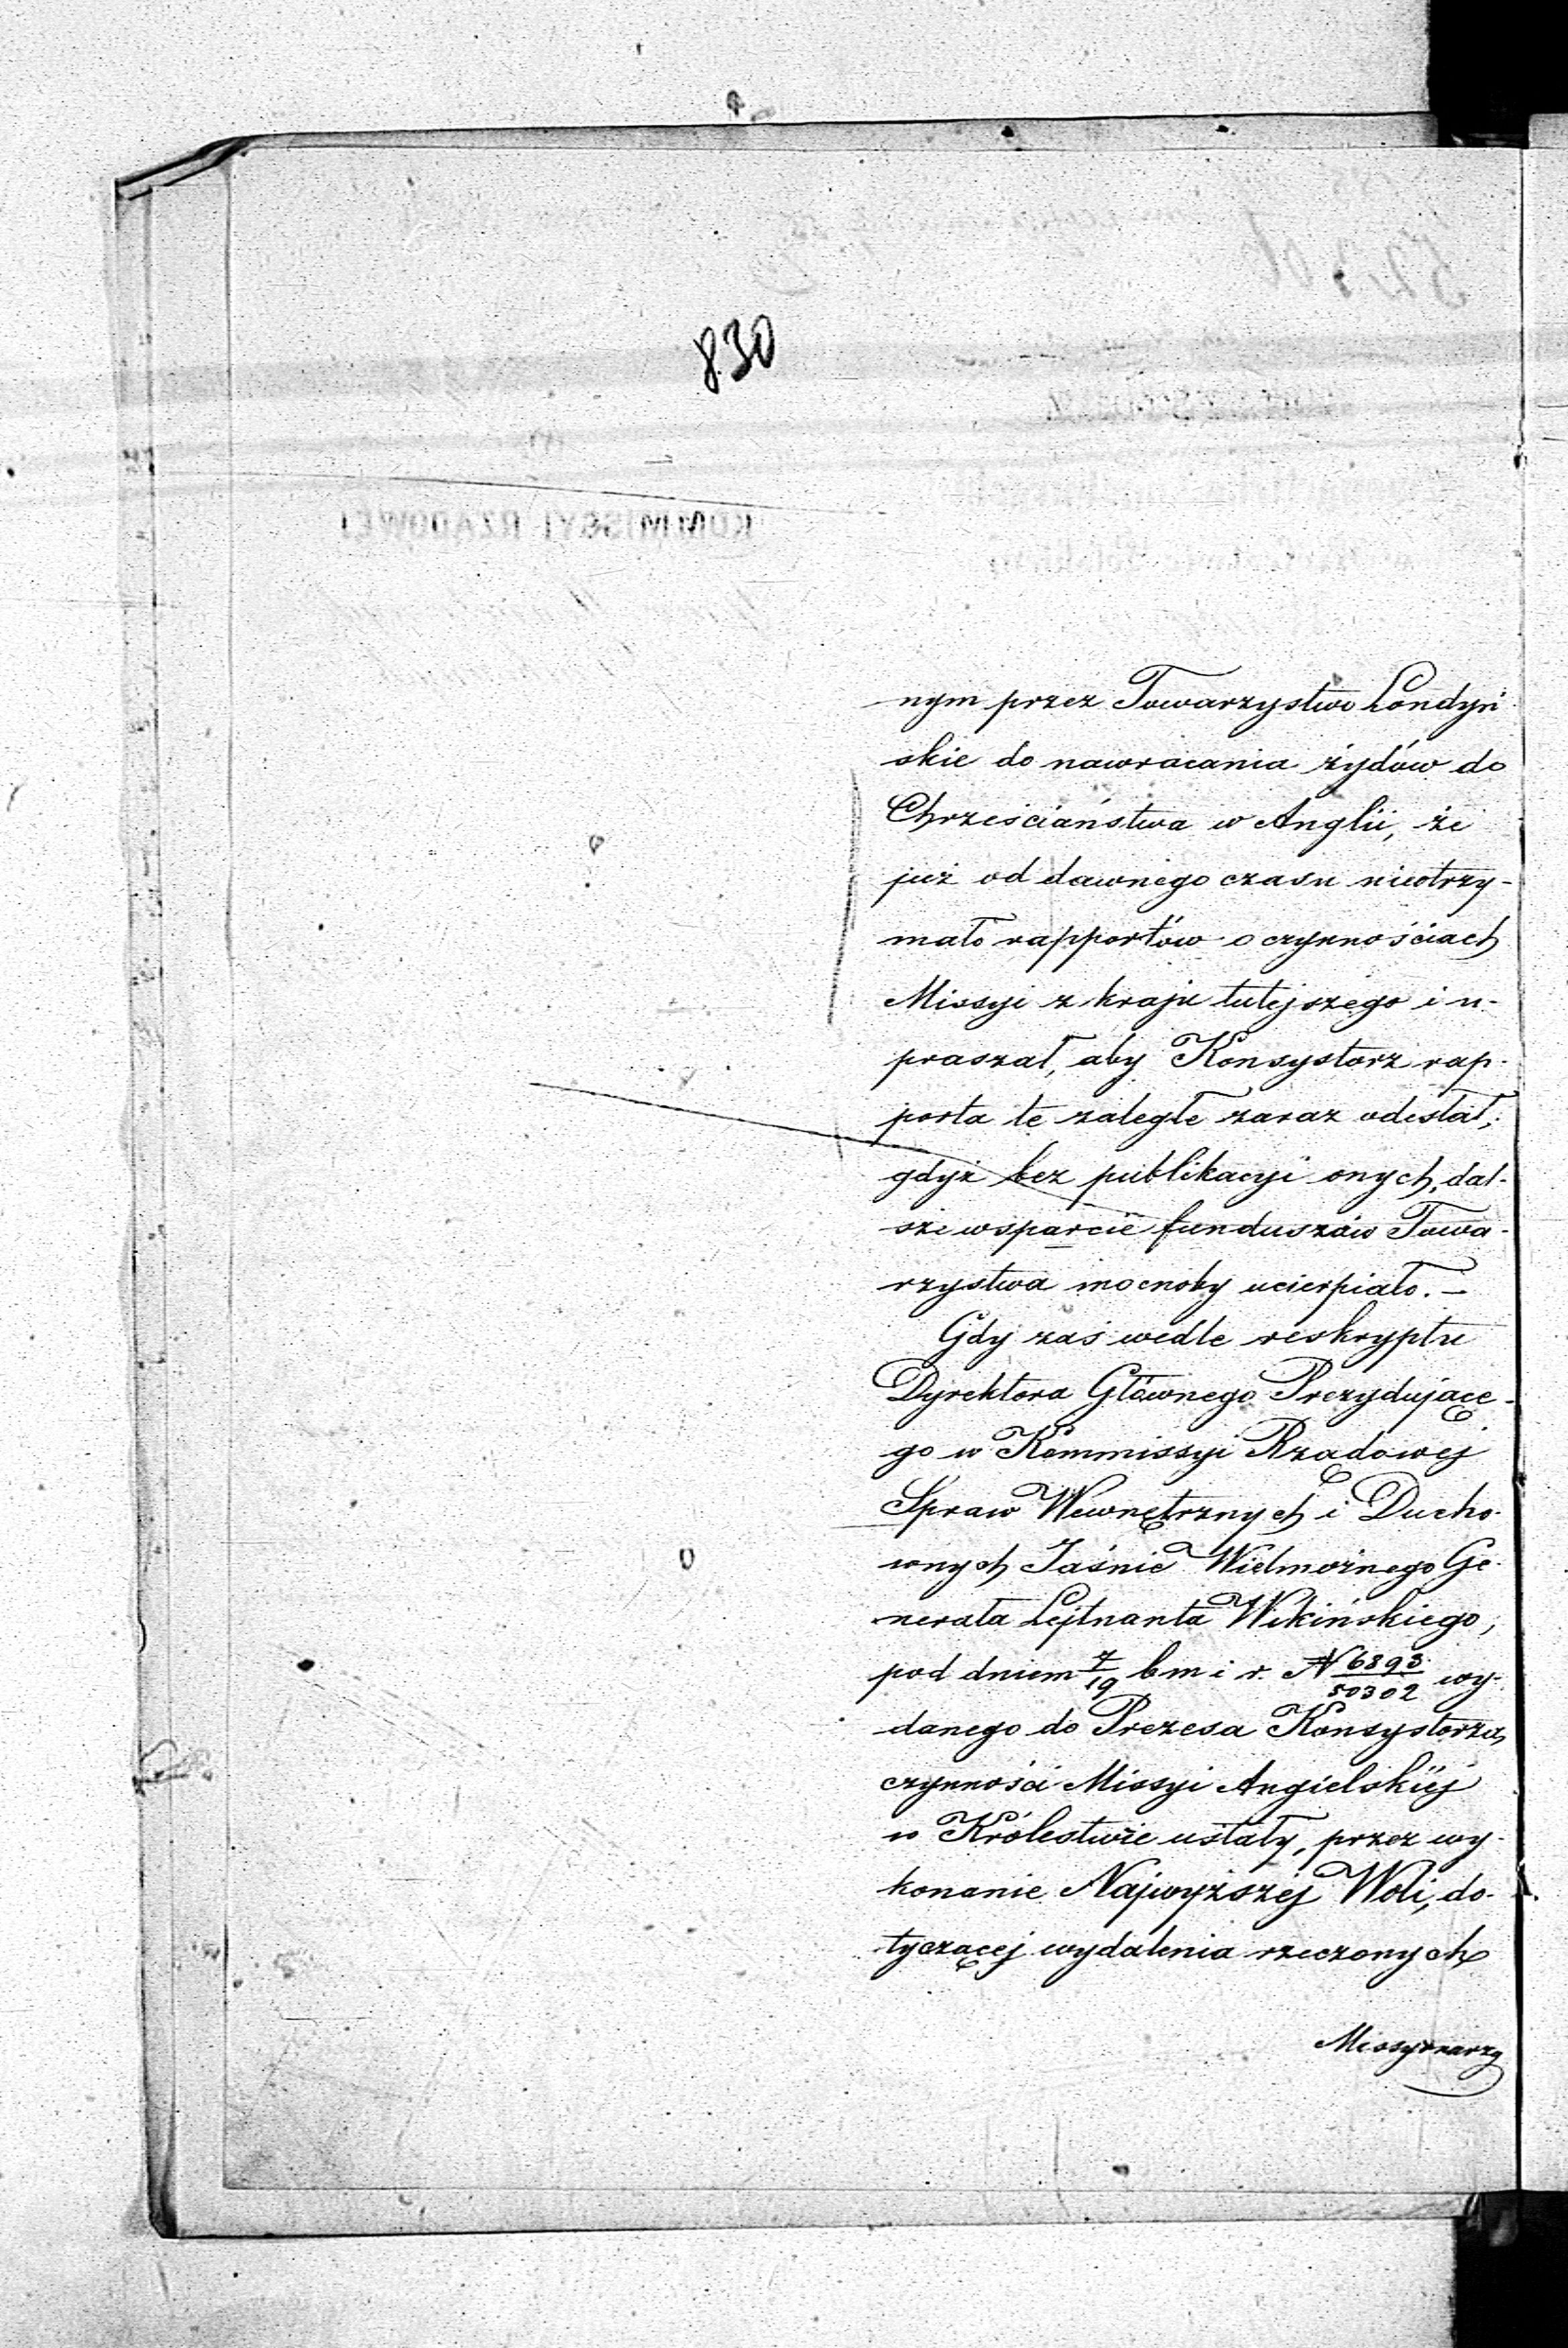 830
nym przez Towarzystwo Londyń
skie do nawracania żydów do
Chrześciaństwa w Anglii, że
już od dawnego czasu nieotrzy-
mało rapportów o czynnościach
Missyi z kraju tutejszego i u-
praszał, aby Konsystorz rap-
porta te zaległe zaraz odesłał,
gdyż bez publikacyi onych, dal-
sze wsparcie funduszów Towa-
rzystwa mocnoby ucierpiało. —
Gdy zaś wedle reskryptu
Dyrektora Głównego Prezydujące-
go w Kommissyi Rządowej
Spraw Wewnętrznych i Ducho-
wnych Jaśnie Wielmożnego Ge-
nerała Lejtnanta Wikińskiego,
pod dniem 7/19 b m i r. N 6893/50302 wy-
danego do Prezesa Konsystorza,
czynności Missyi Angielskiej
w Królestwie ustały, przez wy-
konanie Najwyższej Woli, do-
tyczącej wydalenia rzeczonych
Missyonarzy